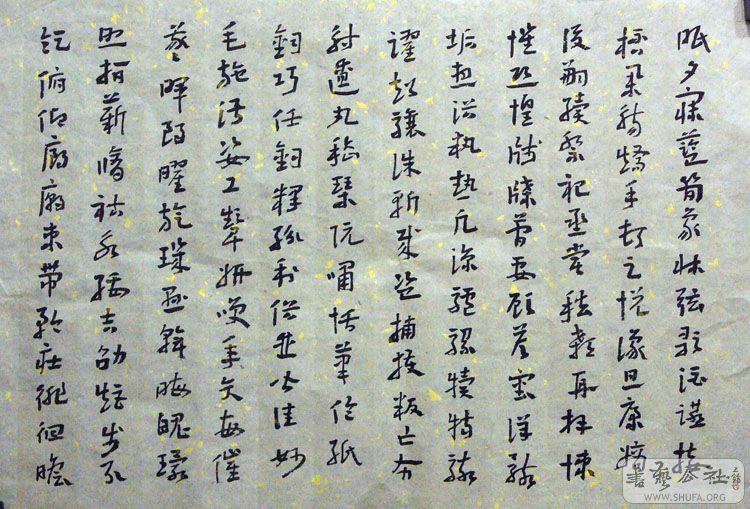 眠夕寐藍筍象床弦歌酒讌接
杯舉觴矯手頓足悅豫且康嫡
後嗣續祭祀蒸嘗稽顙再拜悚
懼恐惶牋牒簡要顧答審詳骸
垢想浴執熱願涼驢騾犢特駭
躍超驤誅斬賊盜捕獲叛亡布
射遼丸嵇琴阮嘯恬筆倫紙
鈞巧任釣釋紛利俗並皆佳妙
毛施淑姿工顰妍笑年矢每催
羲暉朗曜旋璣懸斡晦魄環
照指薪修祜永綏吉劭矩步引
領俯仰廊廟束帶矜莊徘徊瞻
書藝公社
WWW.SHUFA.ORG